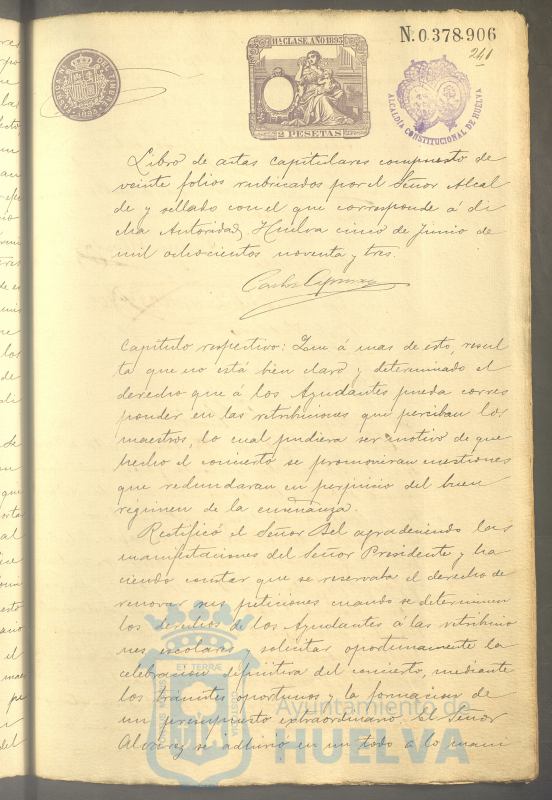 N. 0.378.906
241
11ª CLASE. AÑO 1893
2 PESETAS
1893
ALCALDÍA CONSTITUCIONAL DE HUELVA
Libro de actas capitulares compuesto de
veinte folios rubricados por el Señor Alcal
de y sellado con el que corresponde á di
cha Autoridad, Huelva cinco de Junio de
mil ochocientos noventa y tres.
Carlos
Capitulo respectivo: Que á mas de esto, resul
ta que no está bien claro y determinado el
derecho que á los Ayudantes pueda corres
ponder en las retribuciones que perciban los
maestros, lo cual pudiera ser motivo de que
hecho el concierto se promovieran cuestiones
que redundaran en perjuicio del buen
regimen de la enseñanza.
Rectificó el Señor Bel agradeciendo las
manifestaciones del Señor Presidente y ha
ciendo constar que se reservaba el derecho de
renovar sus peticiones cuando se determinen
los derechos de los Ayudantes á las retribucio
nes escolares y solicitar oportunamente la
celebracion definitiva del concierto, mediante
los trámites oportunos y la formacion de
un presupuesto extraordinario. El Señor
Alvarez se adhirio en un todo á lo mani
Ayuntamiento de
HUELVA